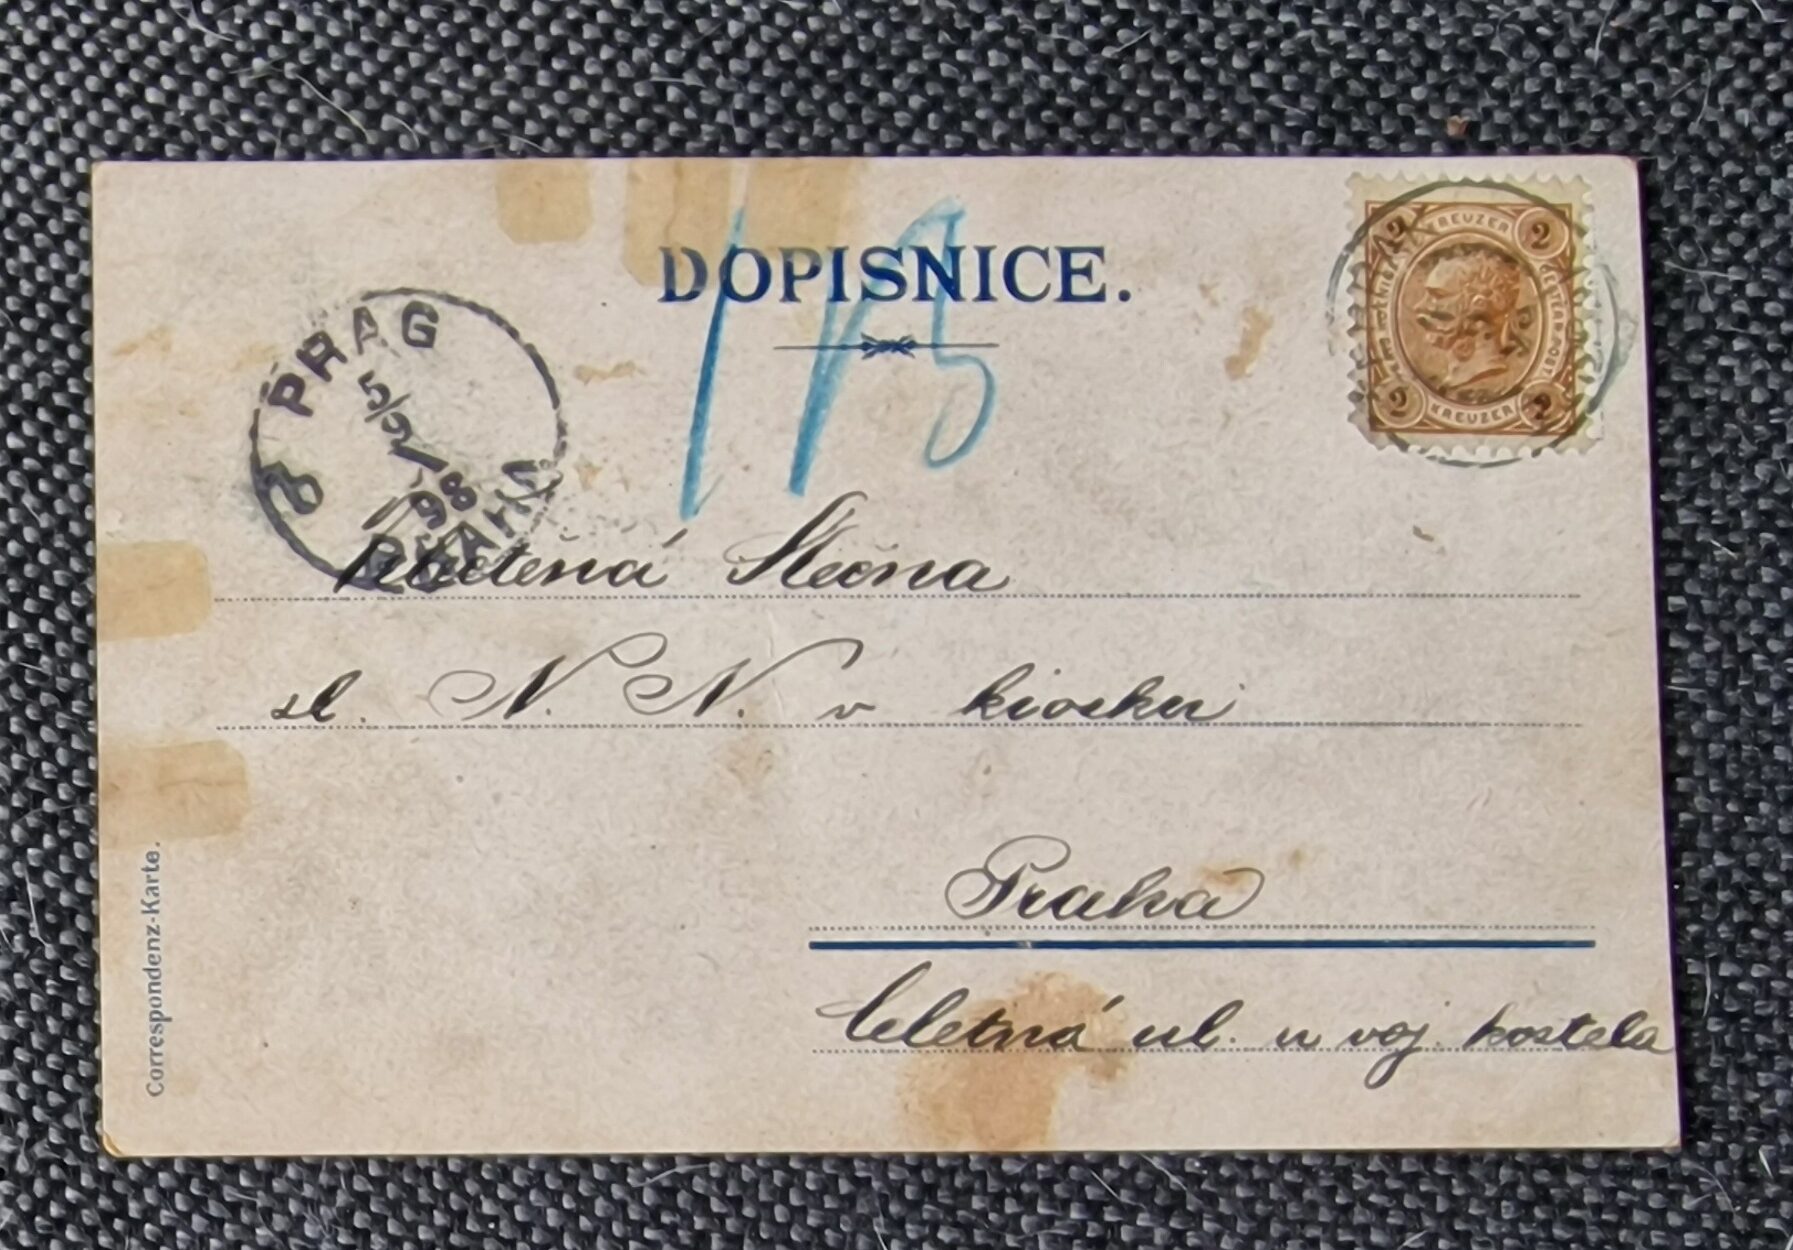 DOPISNICE.
113
PRAG
5/9
98
PRAHA
2 KREUZER 2
2 KREUZER 2
Slečna
sl. N. N. v kiosku
Praha
Celetná ul. u voj. kostela
Correspondenz-Karte.